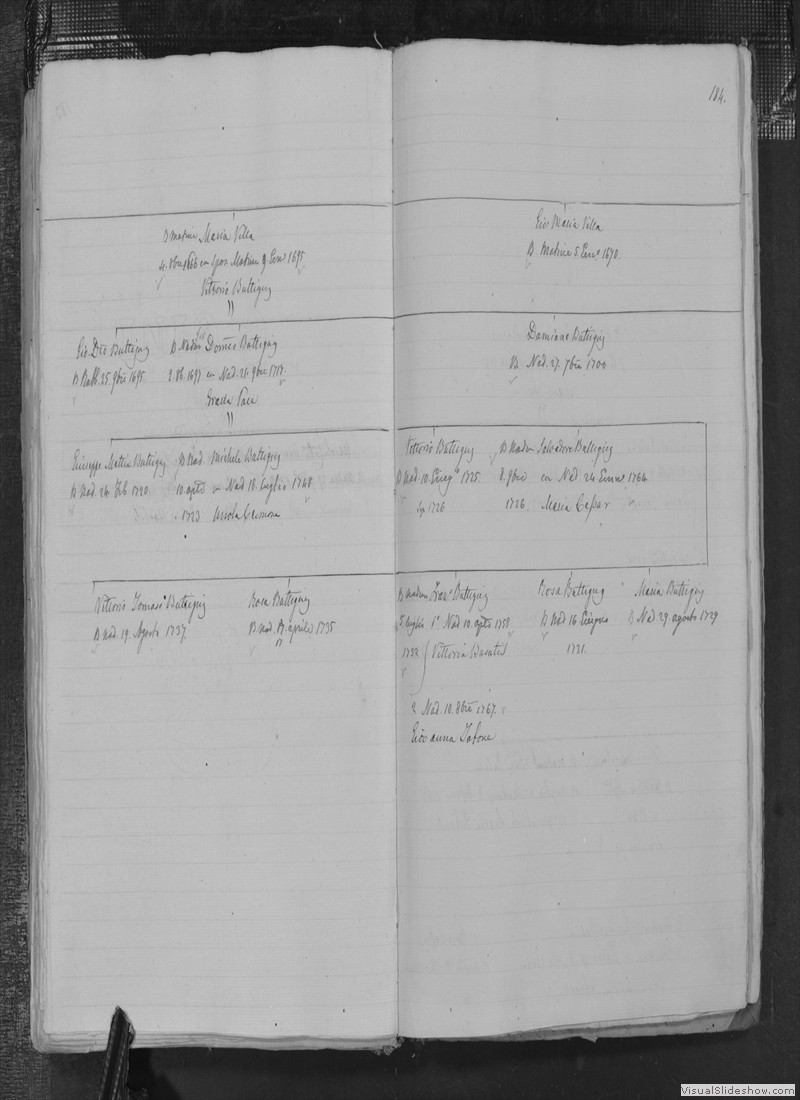 184.
B Matrice Maria Villa
4. 8bre 1666 en spos. Matrice 9. Genn 1695
Vittorio Buttigieg
Gio Maria Villa
B. Matrice 5. Genn° 1670.
Gio. Dre Buttigieg
B Rabb. 25. 9bre 1695
B Nadur Gio Domco Buttigieg
2. 8b. 1697 en Nad. 21. 9bre 1717.
Grazia Pace
Damiano Buttigieg
B Nad. 27. 7bre 1700
Giuseppe Mattia Buttigieg
B Nad. 24. Feb 1720.
B Nad. Michele Buttigieg
10. agto en Nad 18. Luglio 1748
1723
Vittorio Buttigieg
B Nad. 10. Giug° 1725.
1726
B Nadur Salvadore Buttigieg
8. 9bre en Nad 24 Genn° 1764.
1726. Maria
Vittorio Tomaso Buttigieg
B Nad. 19. Agosto 1737.
Rosa Buttigieg
B. Nad. 17. aprile 1735
17
B Nadur Fran° Buttigieg
5 luglio 1° Nad 10. agto 1758
1732 Vittoria
2 Nad. 10. 8bre 1767.
Giovanna Tabone
Rosa Buttigieg
B Nad 16 Giugno
1731.
Maria Buttigieg
B Nad. 29. agosto 1729
VisualSlideshow.com